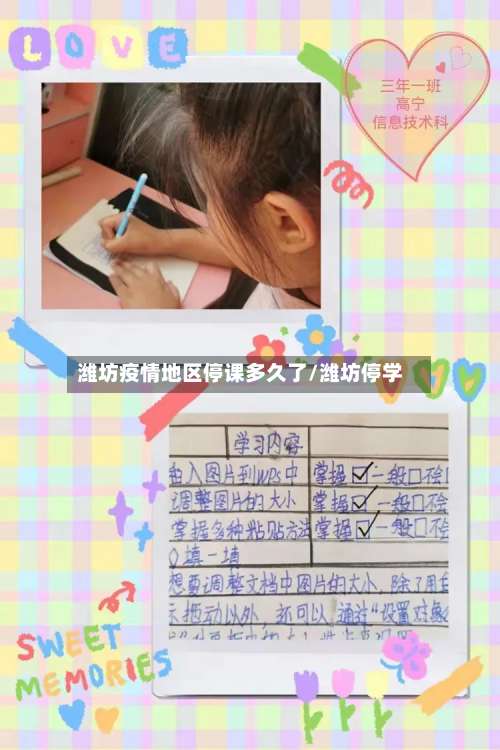 LOVE
三年一班
高宁
信息技术科
潍坊疫情地区停课多久了/潍坊停学
学习内容
入图片到WPS中 掌握☑一般□不会□
调整图片的大小 掌握☑一般□不会
掌握多种粘贴方法 掌握☑一般□不会
填一填
想要调整文档中图片的大小,除了用
示拖动以外,还可以通过“设置对象
LOVE
SWEET
MEMORIES